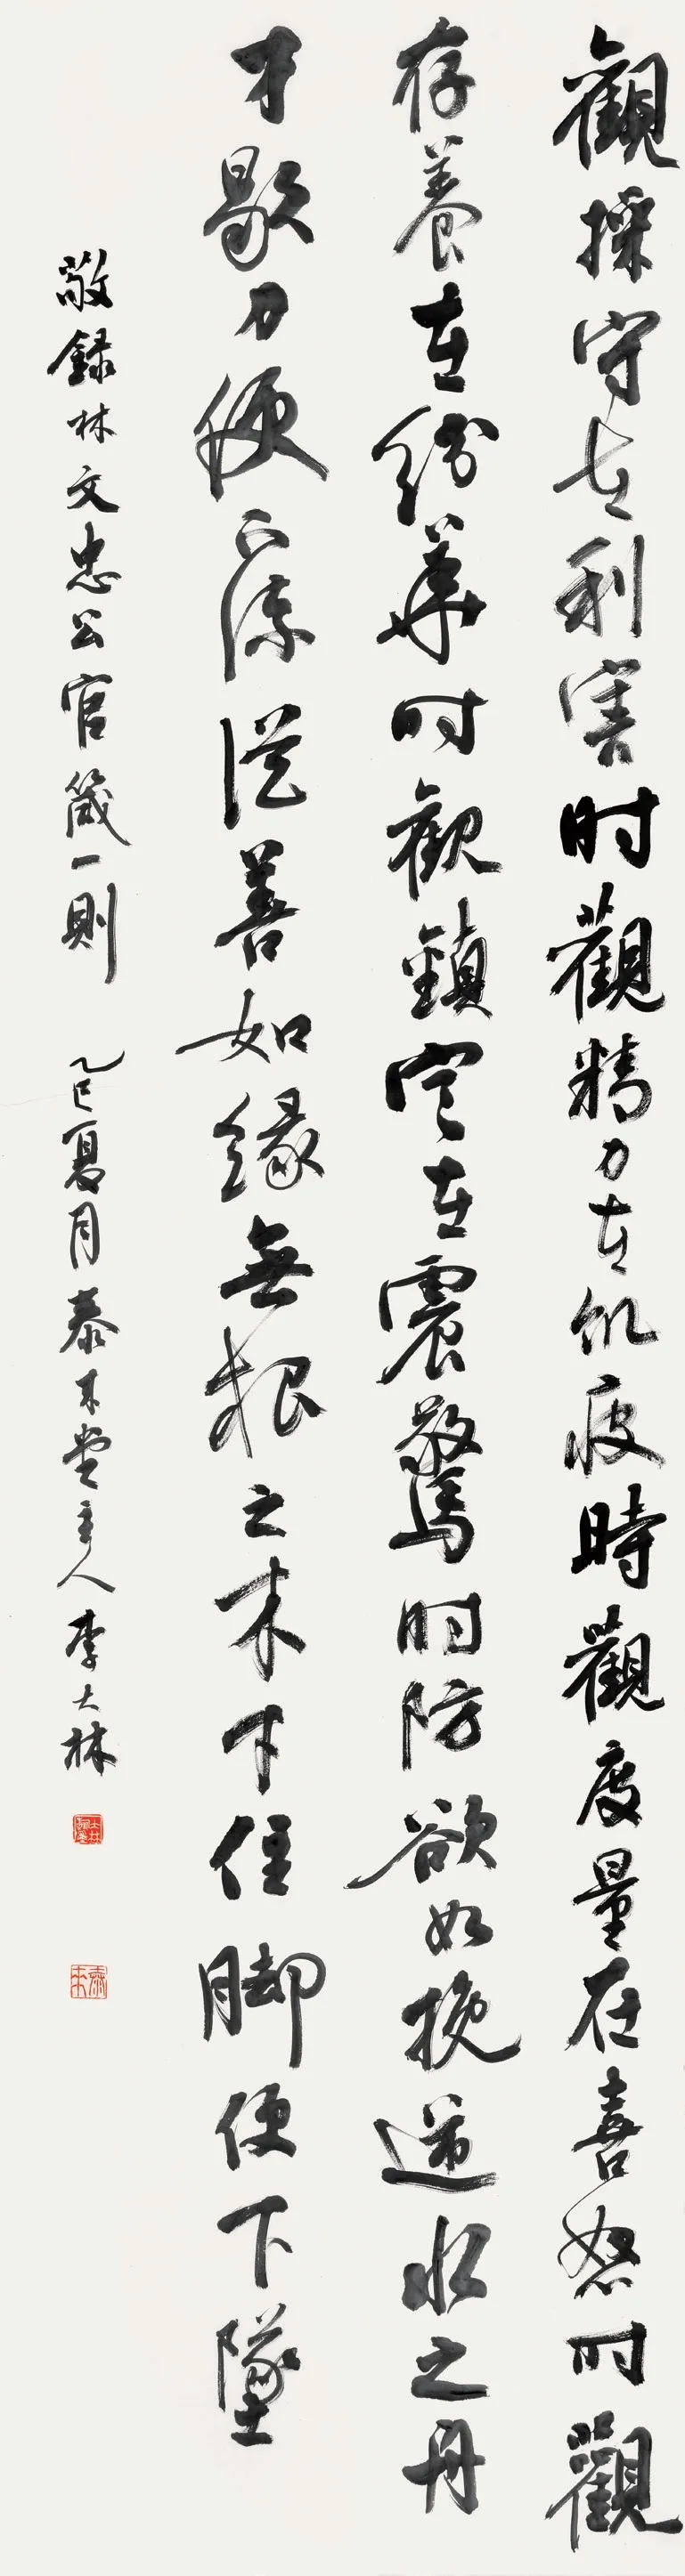 觀操守在利害时觀精力在飢疲時觀度量在喜怒时觀
存養在紛華时觀鎮定在震驚时防欲如挽逆水之舟
才歇力便下流從善如緣無根之木才住脚便下墜
敬録林文忠公官箴一則 乙巳夏月泰木堂主人李大林